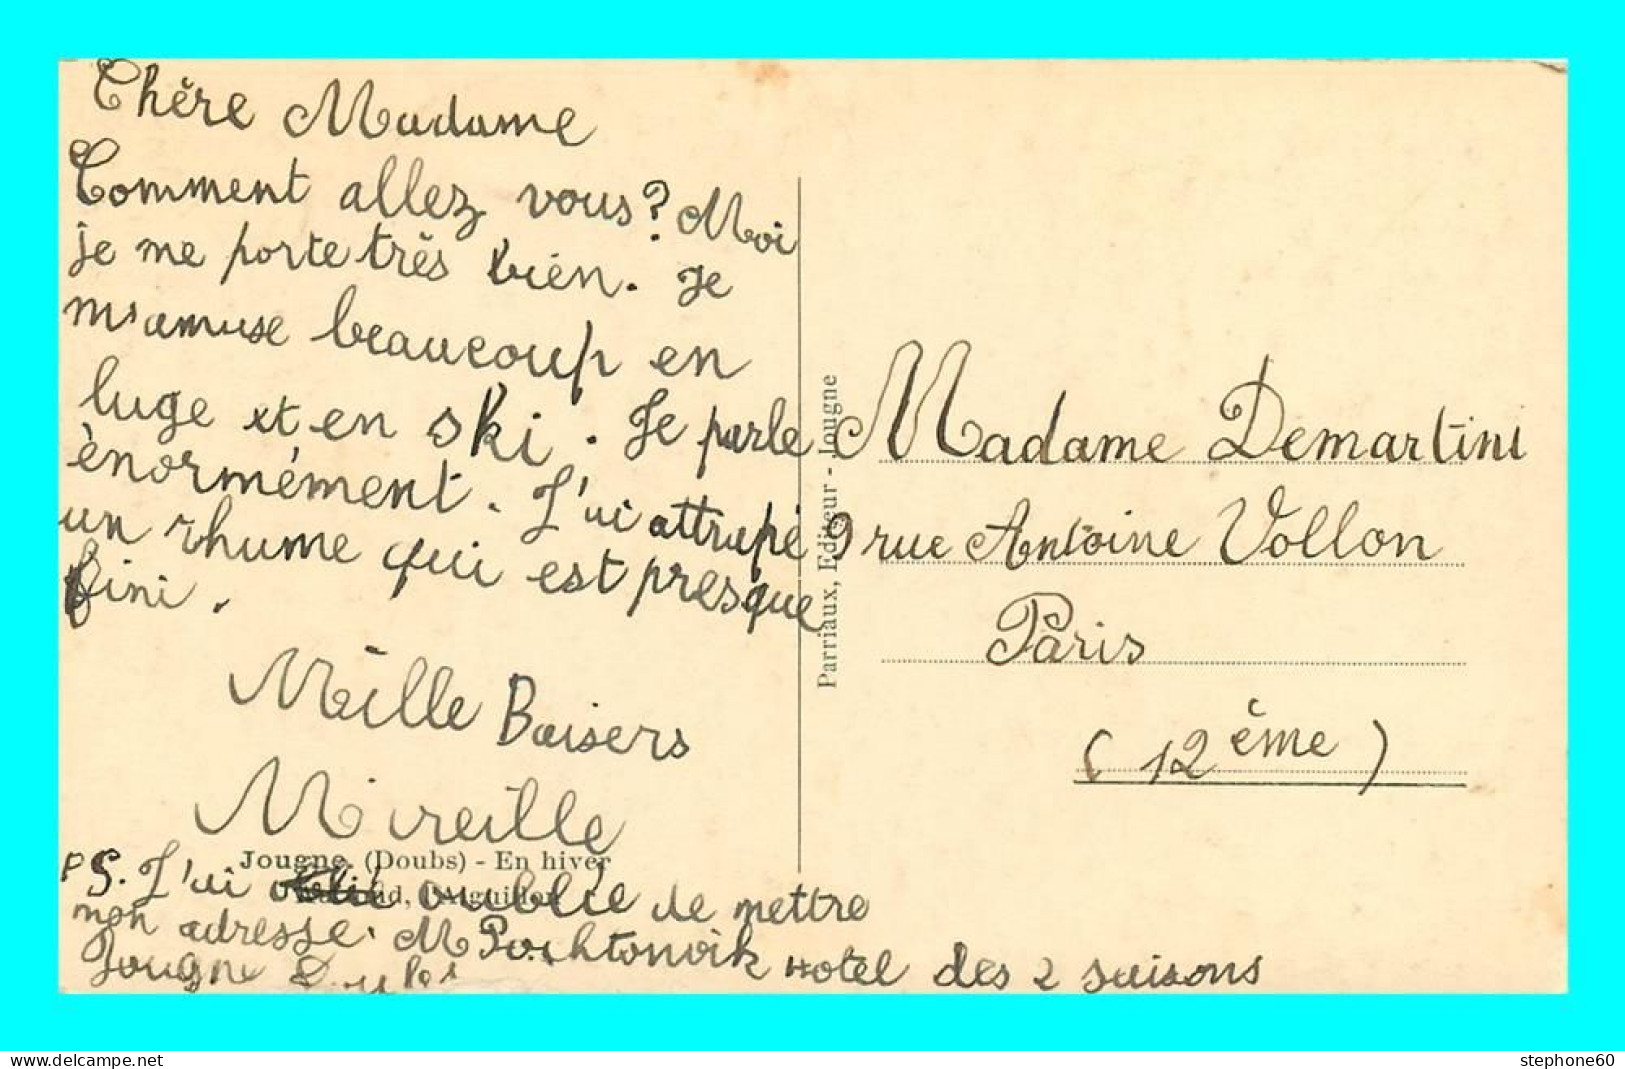 Chère Madame
Comment allez vous? Moi
je me porte très bien. Je
m'amuse beaucoup en
luge et en ski. Je parle
ènormément. J'ai attrapé
un rhume qui est presque
fini.
Mille Baisers
Mireille
Jougne (Doubs) - En hiver
PS. J'ai oublié de mettre
mon adresse. M Hotel des 2 saisons
Jougne Doubs
Parriaux, Editeur - Jougne
Madame Demartini
9 rue Antoine Vollon
Paris
(12ème)
stephone60